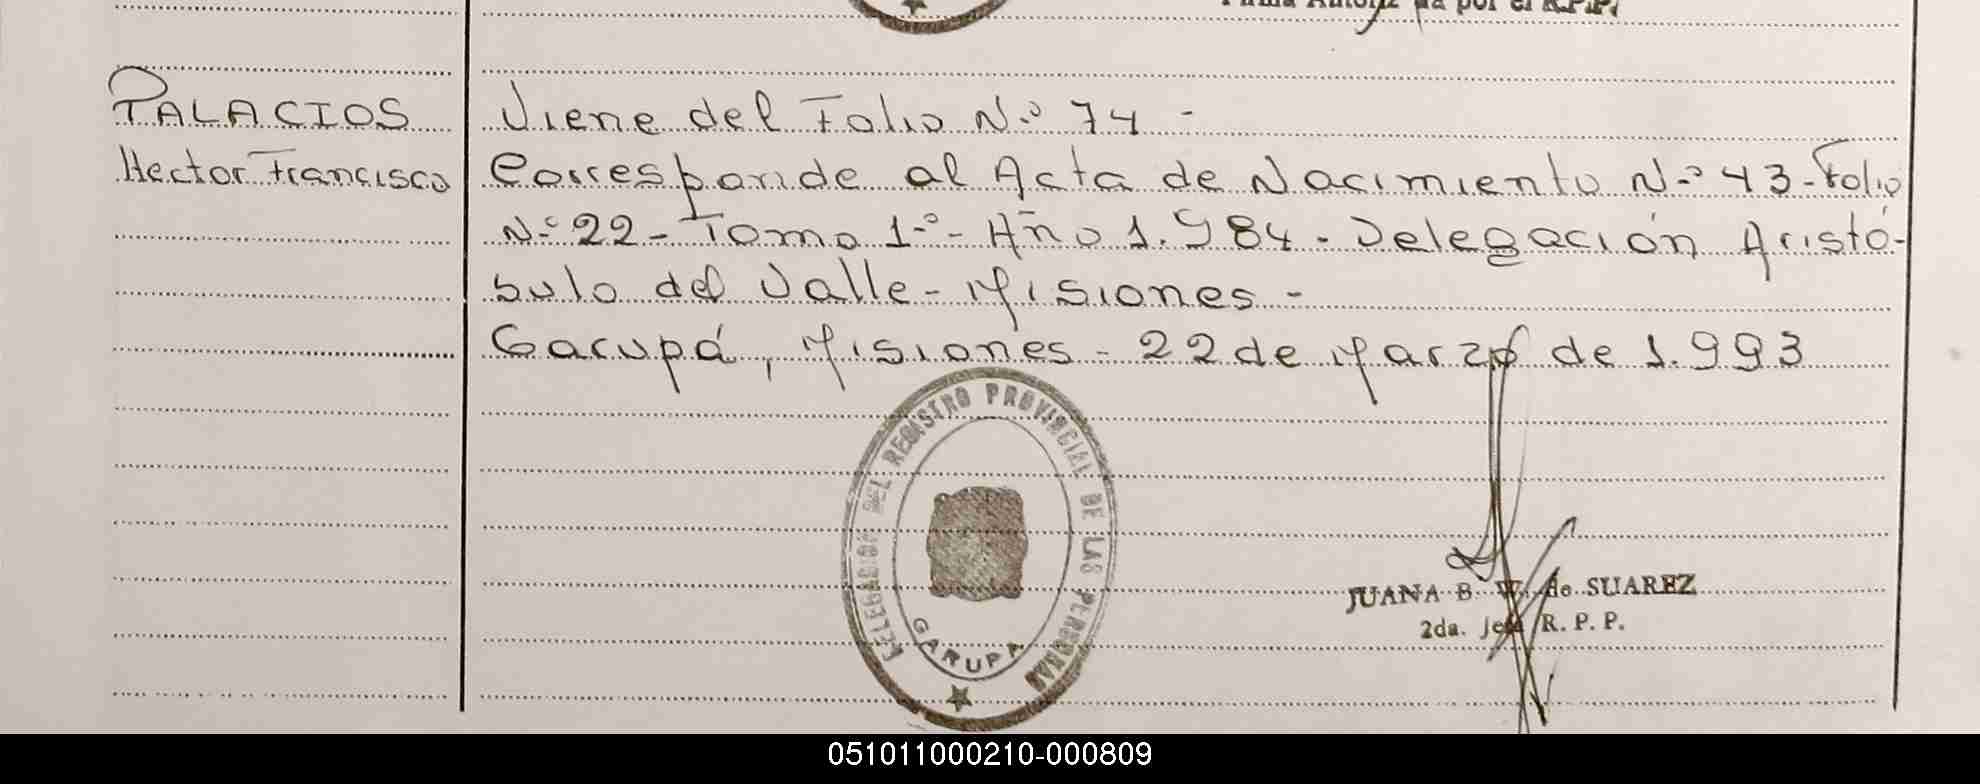 Firma Autoriz da por el R.P.P.
PALACIOS
Hector Francisco
Viene del Folio N.º 74 -
Corresponde al Acta de Nacimiento N.º 43 - Folio
N.º 22 - Tomo 1.º - Año 1.984 - Delegación Aristó-
bulo del Valle - Misiones -
Garupá, Misiones - 22 de Marzo de 1.993
DELEGACION DEL REGISTRO PROVINCIAL DE LAS PERSONAS
GARUPA
JUANA B. W. de SUAREZ
2da. Jefa R. P. P.
051011000210-000809